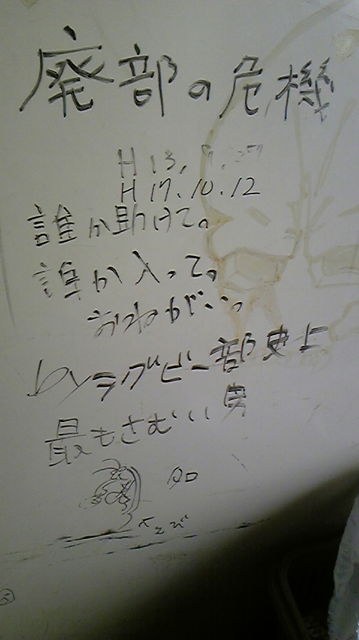 廃部の危機
H13.9.27
H17.10.12
誰か助けて。
誰か入って。
おねがい。
byラグビー部史上
最もさむいい男